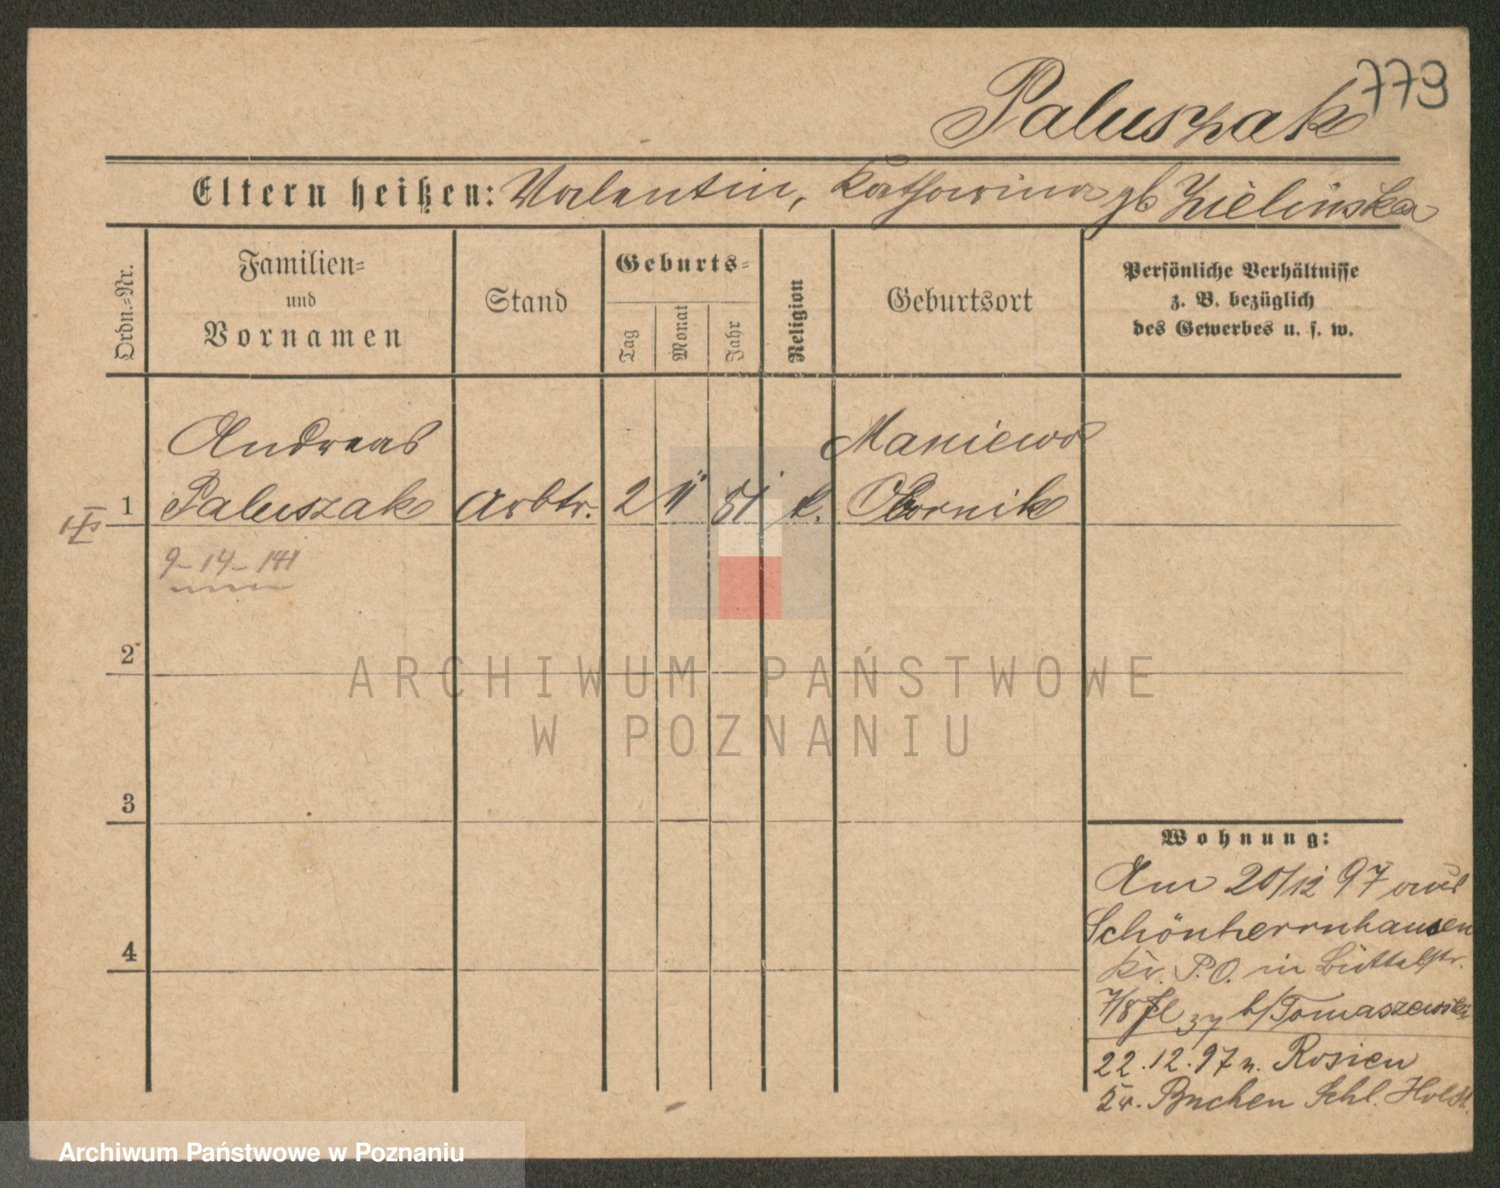 779
Paluszak
Eltern heißen: Valentin, Katharina gb Zielinska
Ordn.=Nr.
Familien=
und
Vornamen
Stand
Geburts=
Tag
Monat
Jahr
Religion
Geburtsort
Persönliche Verhältnisse
z. B. bezüglich
des Gewerbes u. s. w.
Andreas
Maniewo
1 Paluszak Arbtr. 2 11 51 k. Obornik
9-14-141
2
3
4
Wohnung:
Am 20/12 97 aus
Schönherrnhausen
Kr. P.O. in Büttelstr.
7/8 zg b/Tomaszewski
22.12.97 n. Rosien
Kr. Buchen Schl. Holst.
ARCHIWUM PAŃSTWOWE
W POZNANIU
Archiwum Państwowe w Poznaniu